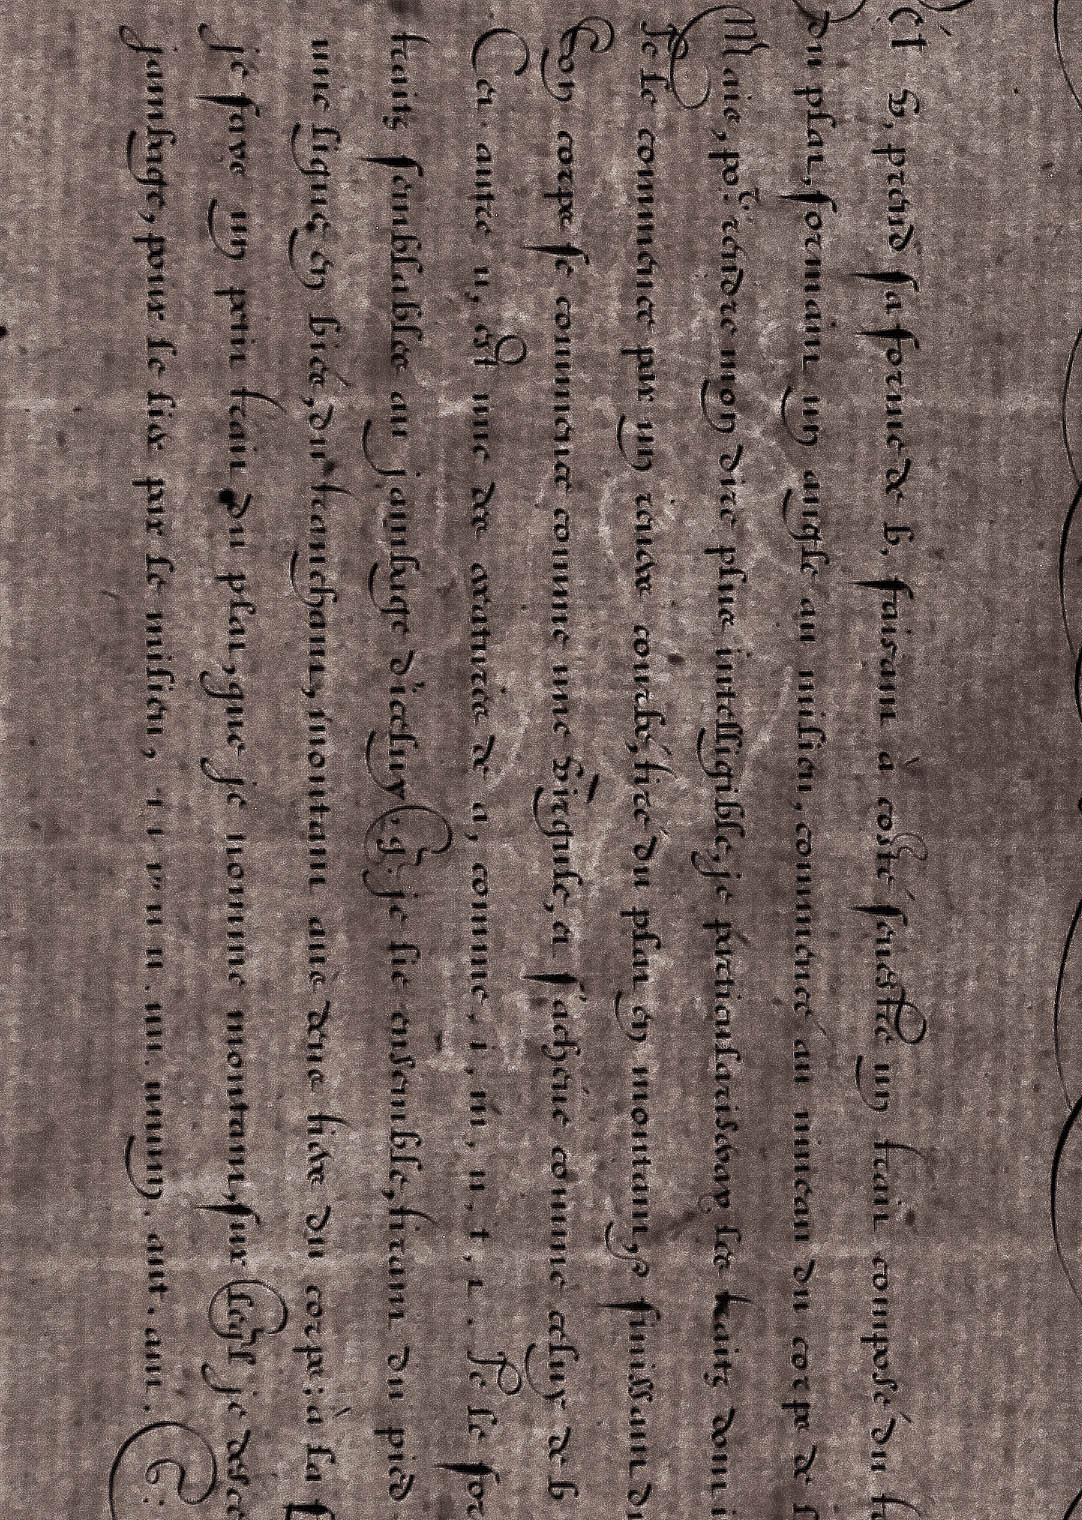 Et B, prend sa forme de b, faisant à costé senestre un trait composé du
Du plat, formant un angle au milieu, commencé au niveau du corps de
Mais, po.r rendre mon dire plus intelligible, je particulariseray les traitz dont i
Je Le commence par un roulx courbé, tiré du plat en montant, & finissant d
Son corps se commence comme une virgule, a s'acheve comme celuy de b
Cet autre u, est une des oxatures de a, comme, i, m, n, t, r. Je le for
traitz semblables au jambage d'iceluy, q. je lie ensemble, tirant du pied
une ligne en bies, du tranchant, montant avec deux tiers du corps: à la
je fais un petit trait du plat, que je nomme montant, sur lequel je desce
jambage, pour le lier par le milieu, i i v u u. uu. uuuy. aut. aut.